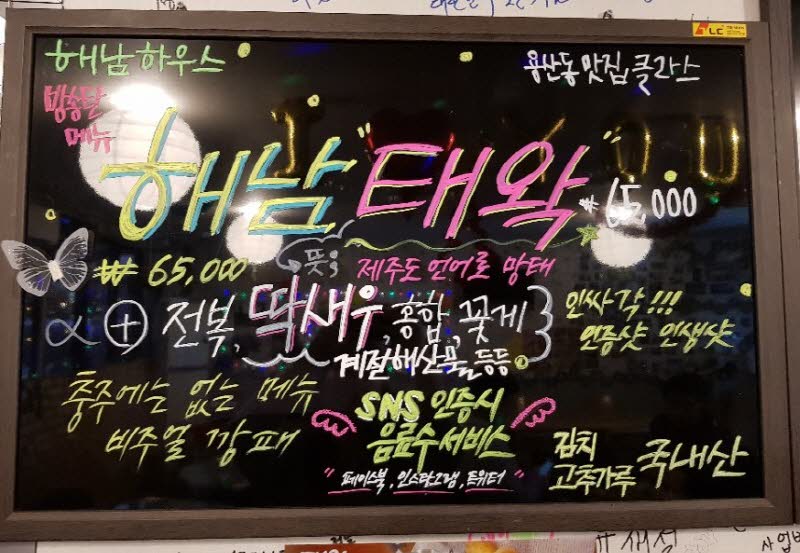 해남하우스
용산동 맛집 클라스
방송탄
메뉴
해남 "태왁" ₩ 65,000
₩ 65,000
뜻; 제주도 언어로 망태
α ⊕ 전복, 딱새우, 홍합, 꽃게
계절해산물 등등
인싸 각!!!
인증샷 인생샷
충주에는 없는 메뉴
비주얼 깡패
SNS 인증시
음료수 서비스
"페이스북, 인스타그램, 트위터"
김치
고추가루 국내산
LC